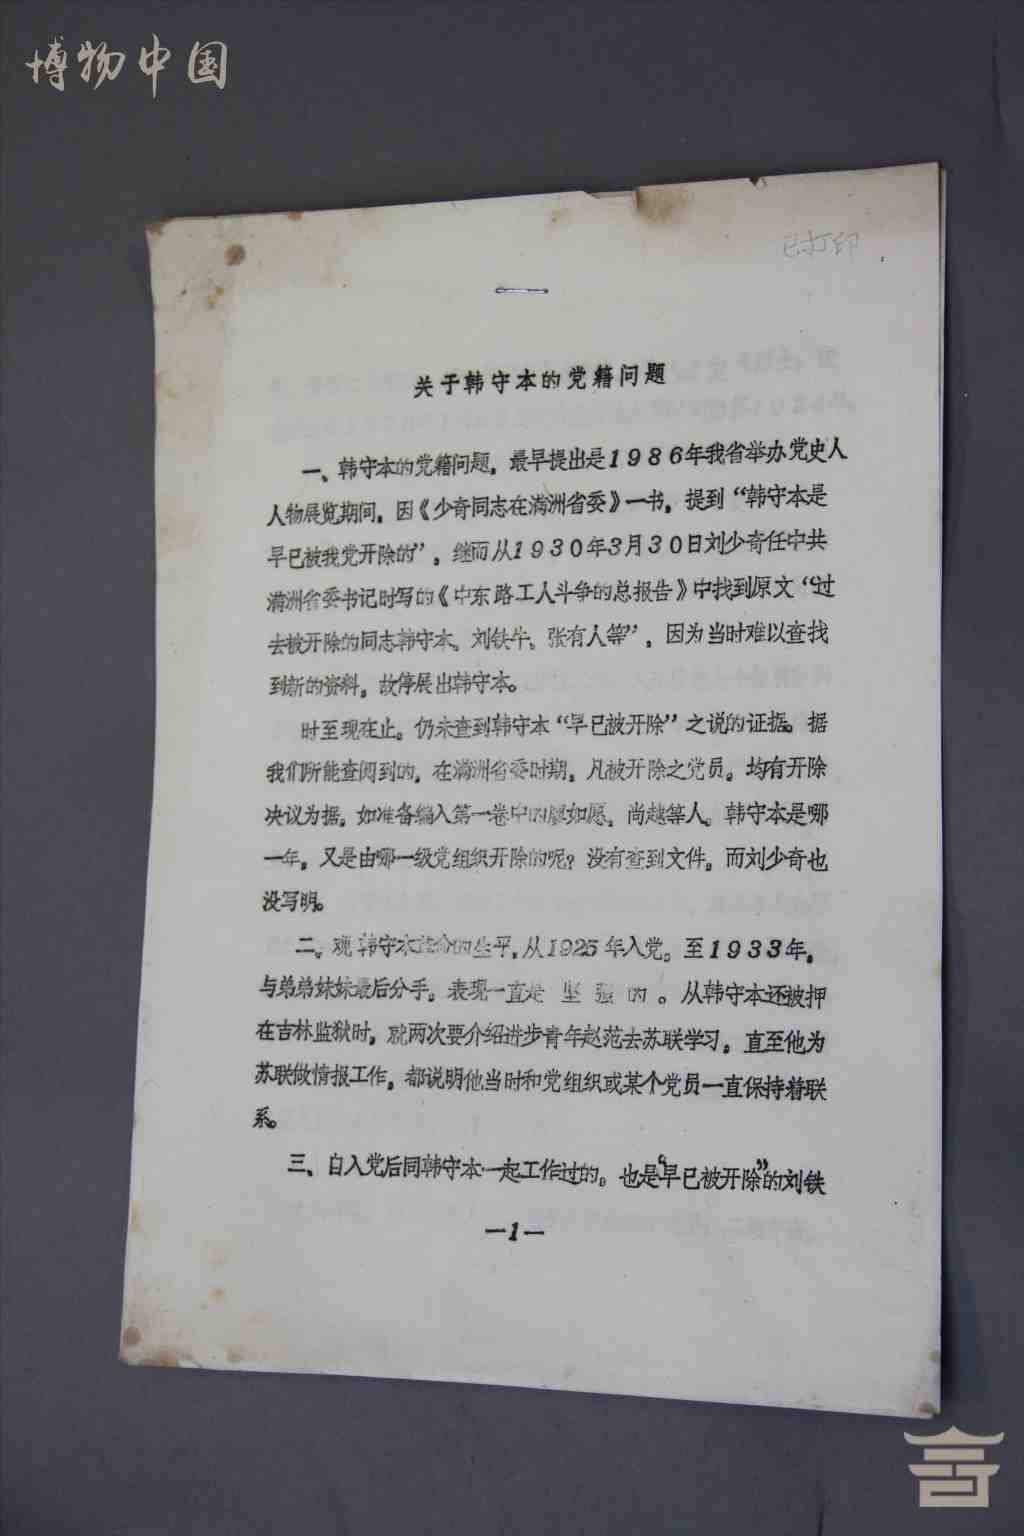 博物中国
已打印
关于韩守本的党籍问题
一、韩守本的党籍问题，最早提出是1986年我省举办党史人
人物展览期间，因《少奇同志在满洲省委》一书，提到“韩守本是
早已被我党开除的”，继而从1930年3月30日刘少奇任中共
满洲省委书记时写的《中东路工人斗争的总报告》中找到原文“过
去被开除的同志韩守本、刘铁牛、张有人等”，因为当时难以查找
到新的资料，故停展出韩守本。
时至现在止。仍未查到韩守本“早已被开除”之说的证据。据
我们所能查阅到的，在满洲省委时期，凡被开除之党员。均有开除
决议为据。如准备编入第一卷中的廖如愿、尚越等人。韩守本是哪
一年，又是由哪一级党组织开除的呢？没有查到文件。而刘少奇也
没写明。
二、观韩守本革命的生平，从1925年入党。至1933年，
与弟弟妹妹最后分手。表现一直是 坚 强 的 。从韩守本还被押
在吉林监狱时，就两次要介绍进步青年赵范去苏联学习，直至他为
苏联做情报工作，都说明他当时和党组织或某个党员一直保持着联
系。
三、自入党后同韩守本一起工作过的。也是“早已被开除”的刘铁
—1—